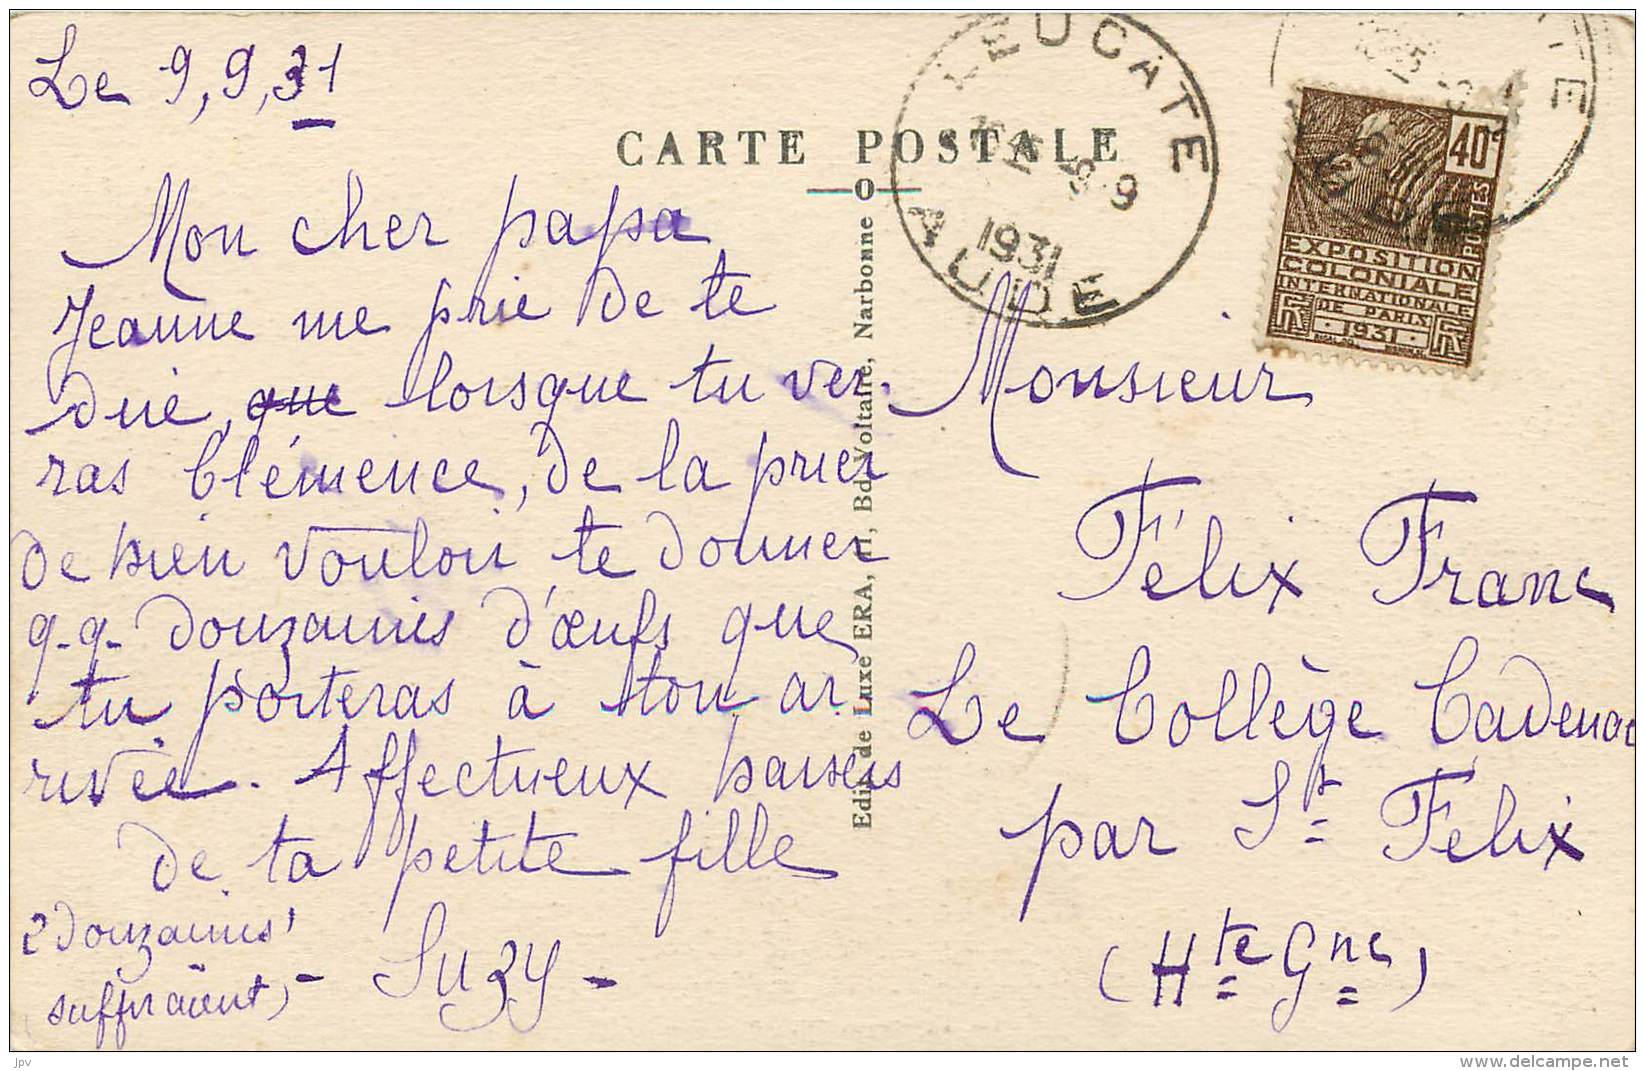 Le 9, 9, 31
CARTE POSTALE
Mon cher papa
Jeanne me prie de te
dire, que lorsque tu ver.
ras Clémence, de la prier
de bien vouloir te donner
q.q. douzaines d'œufs que
tu porteras à ton ar
rivée. Affectueux baisers
de ta petite fille
Suzy -
2 douzaines
suffiraient, -
Edit. de Luxe ERA, Bd Voltaire, Narbonne
LEUCATE
9-9
1931
AUDE
40c
POSTES
EXPOSITION
COLONIALE
INTERNATIONALE
DE PARIS
RF 1931 RF
Monsieur
Félix Franc
Le Collège Cadenac
par St Félix
(Hte Gne)
jpv
www.delcampe.net